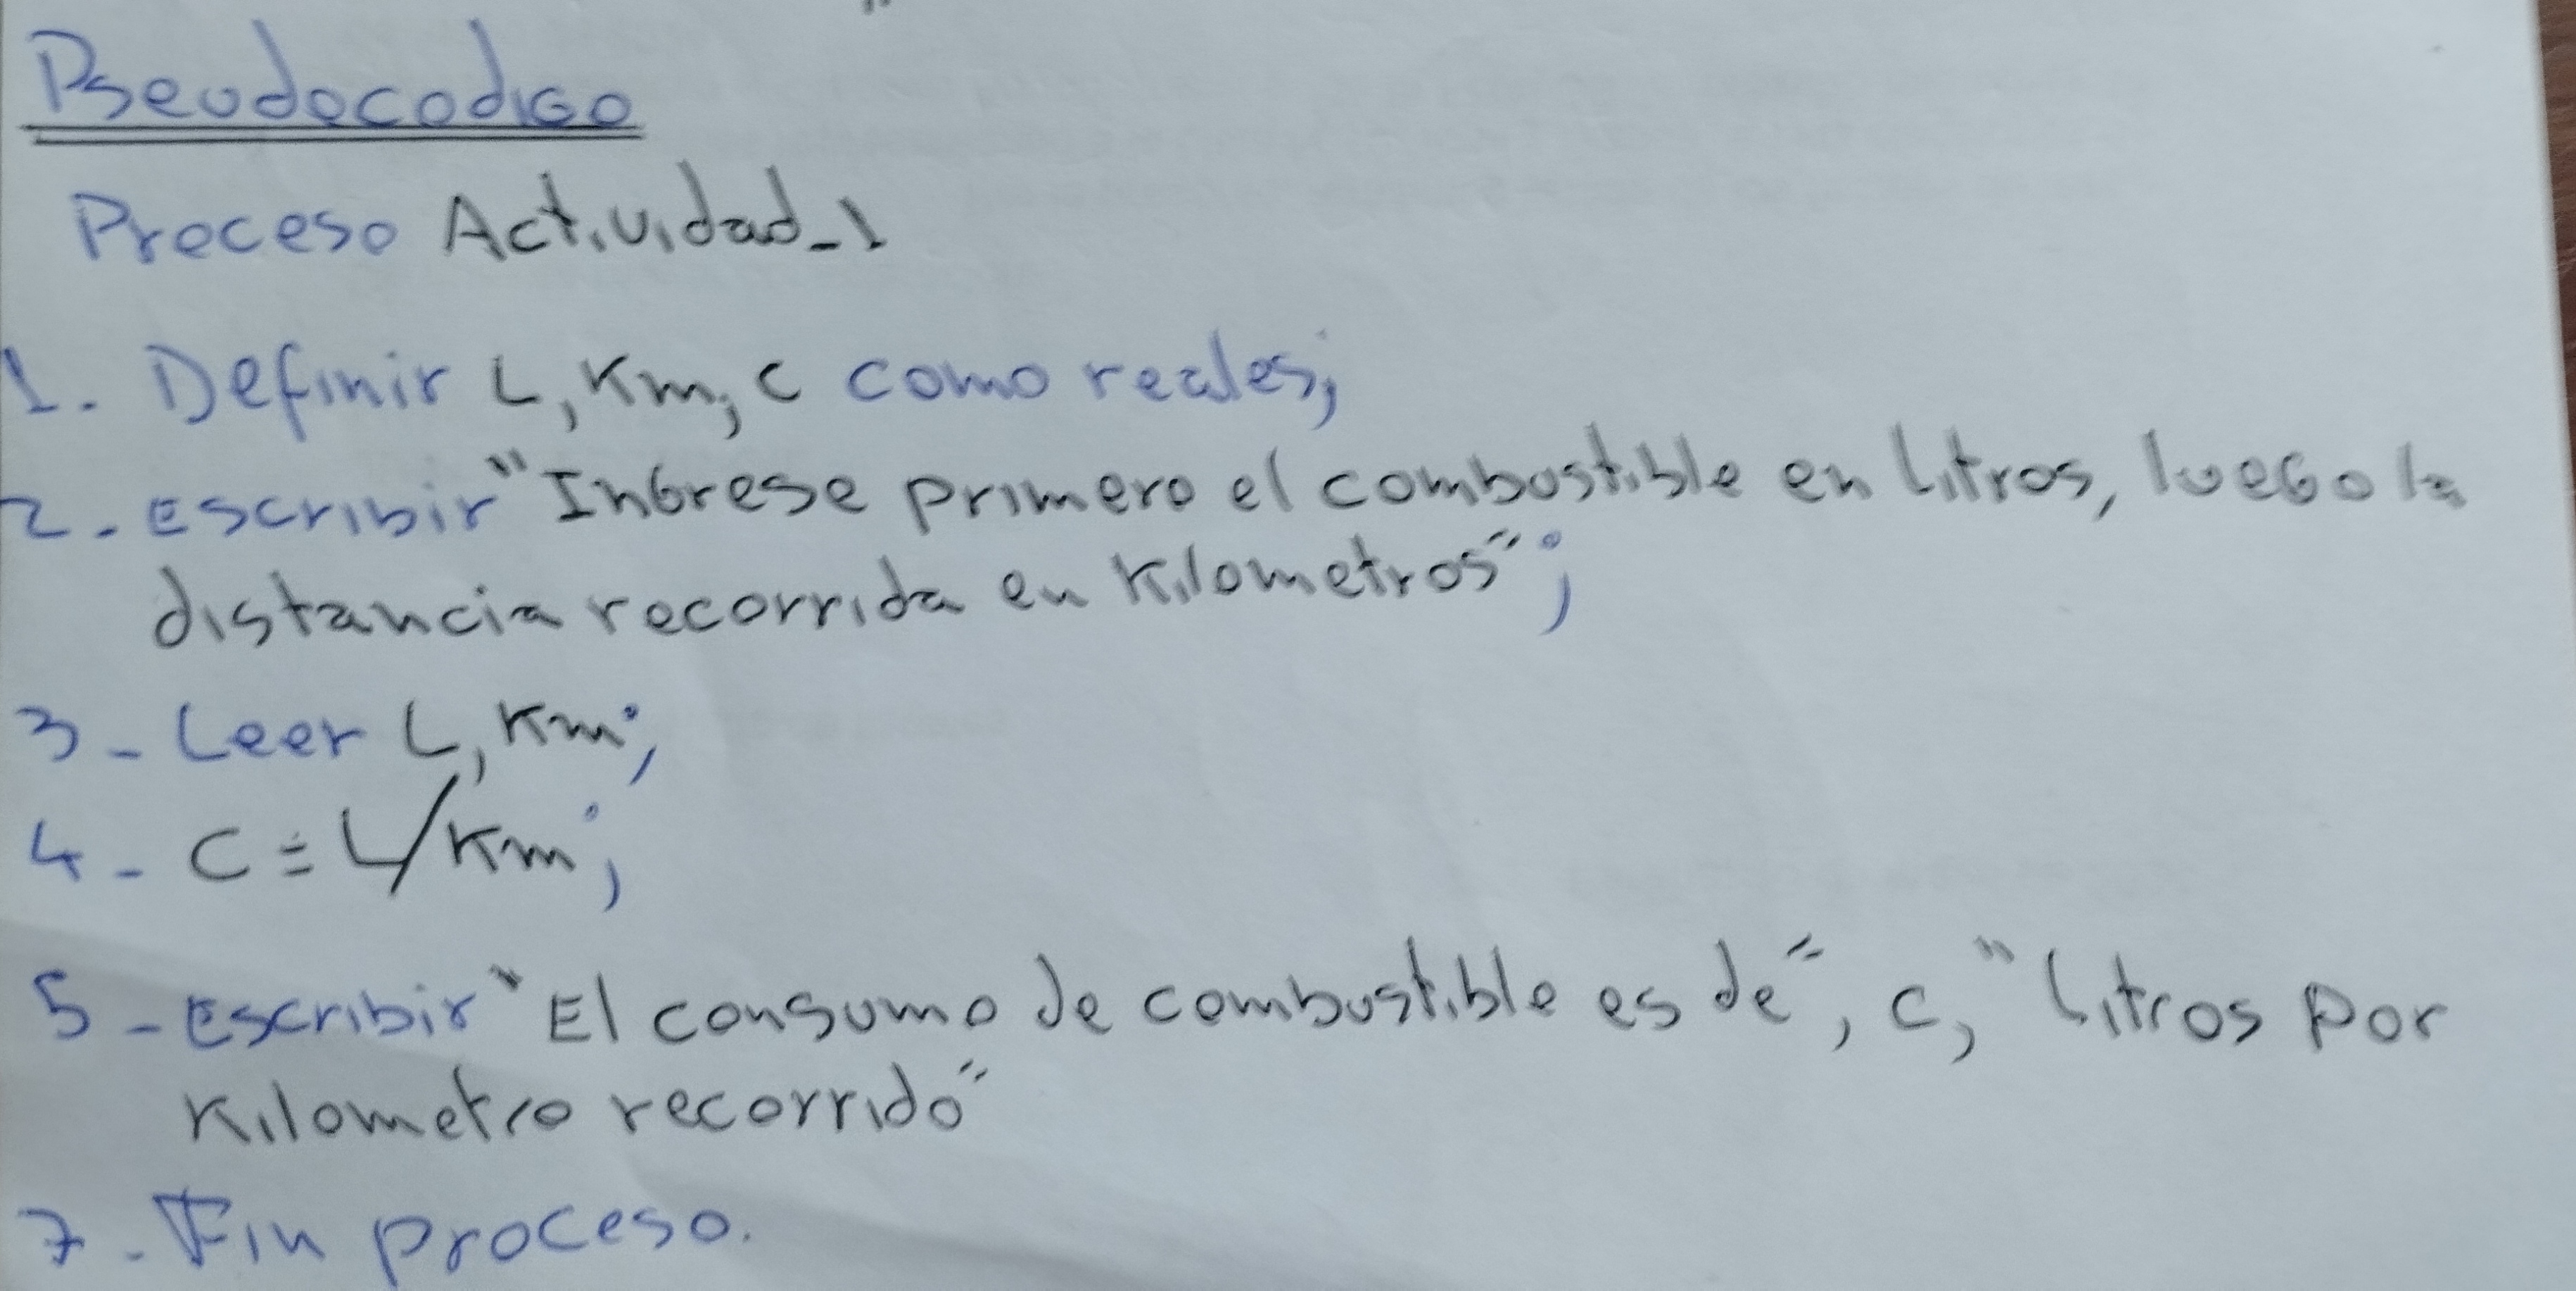 Pseudocodigo
Proceso Actividad_1
1. Definir L, Km, C como reales;
2. Escribir "Ingrese primero el combustible en litros, luego la
distancia recorrida en Kilometros";
3 - Leer L, Km;
4 - C = L/Km;
5 - Escribir "El consumo de combustible es de", C, "Litros por
Kilometro recorrido"
7. Fin proceso.